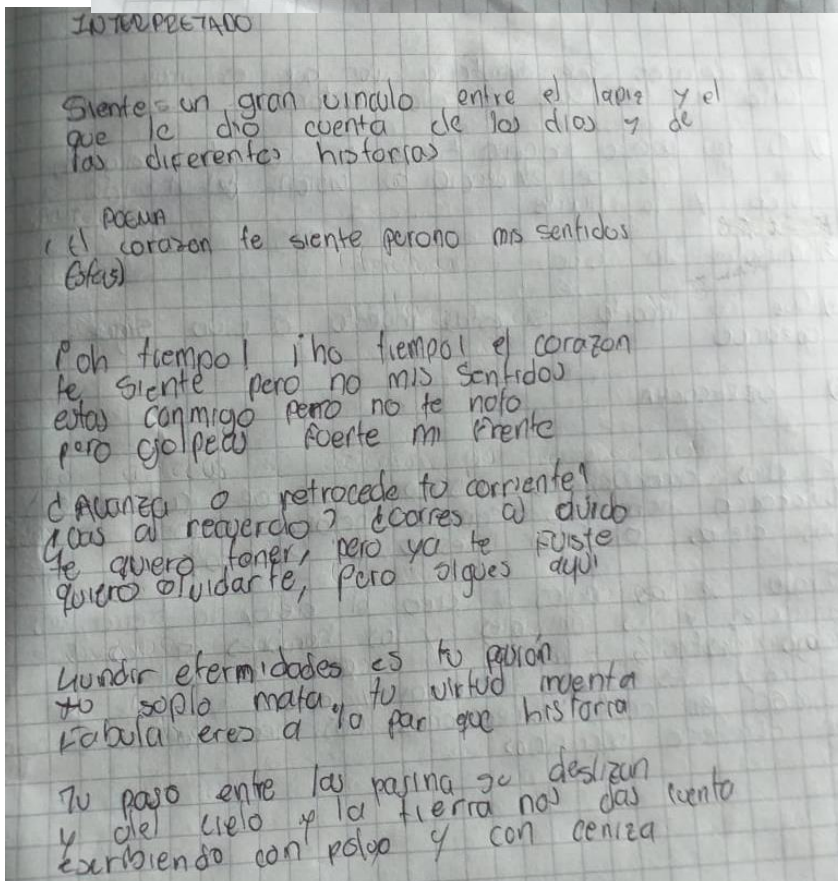 INTERPRETADO
Siente un gran vinculo entre el lapiz y el
que le dio cuenta de los dias y de
las diferentes historias
POEMA
(El corazon te siente perono mis sentidos
Estas)
¡oh tiempo! ¡ho tiempo! el corazon
te siente pero no mis sentidos
estas conmigo pero no te noto
pero golpeas fuerte mi frente
¿Avanza o retrocede tu corriente?
al recuerdo? ¿corres al olvido
te quiero tener, pero ya te fuiste
quiero olvidarte, pero sigues aqui
Hundir eternidades es tu pasión
tu soplo mata, tu virtud inventa
Fabula eres a la par que historia
Tu paso entre las pasina se deslizan
y del cielo y la tierra nos das cuento
escribiendo con polvo y con ceniza